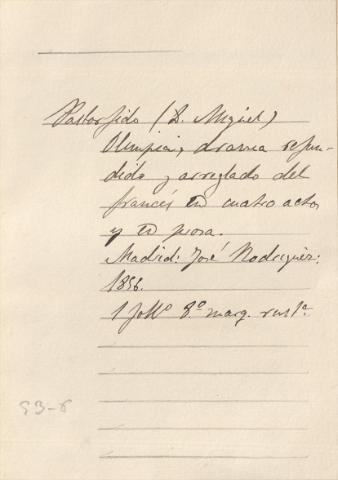 Pastorfido (D. Miguel)
Olimpia, drama refun-
dido y arreglado del
francés en cuatro actos
y en prosa.
Madrid: José Rodriguez:
1856.
1 follº 8º marq. rustª
53-6